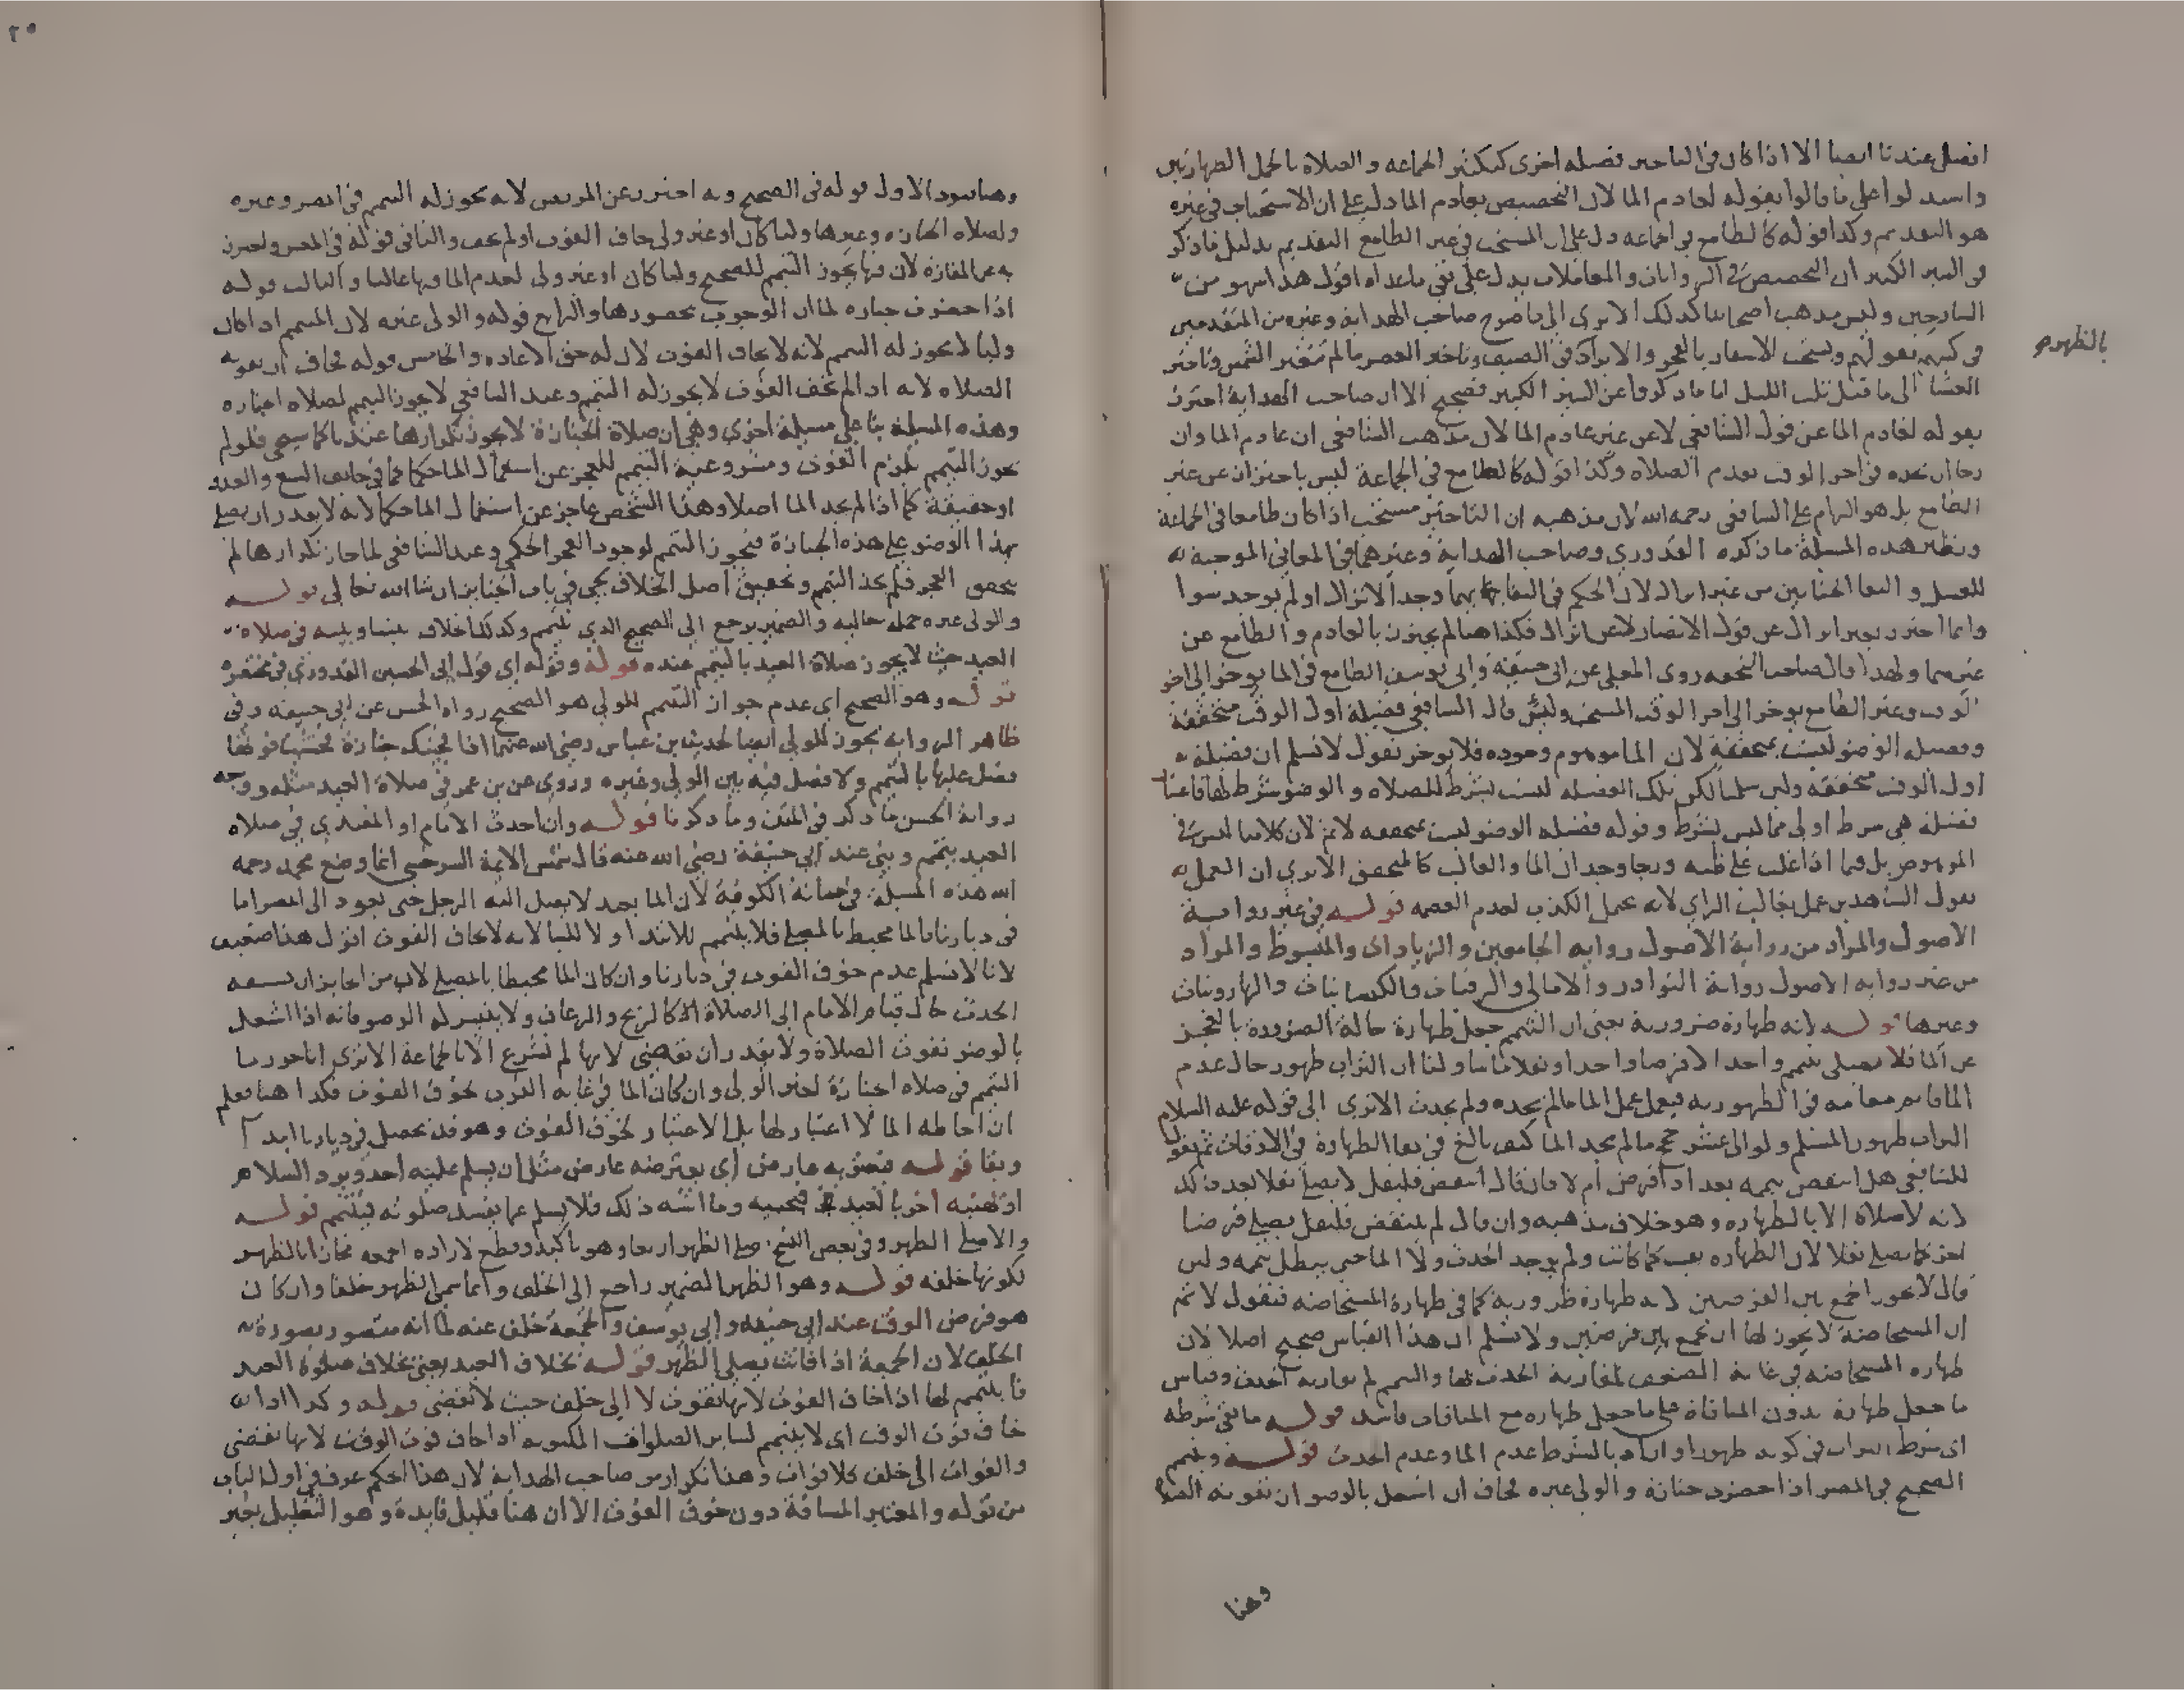 افضل عندنا ايضا الا اذا كان في التاخير فضيلة اخرى كتكثير الجماعه والصلاة باكمل الطهارتين
واستدلوا على ما قالوا بقوله لعادم الما لان التخصيص بعادم الما دليل على ان الاستحباب في غيره
هو التقديم وكذا قوله كالطامع في الجماعه دل على ان المستحب في غير الطامع التقديم بدليل ما ذكر
في السير الكبير ان التخصيص في الروايات والمعاملات يدل على نفي ما عداه اقول هذا سهو من
الشارحين وليس مذهب اصحابنا كذلك الا يرى الى ما صرح صاحب الهداية وغيره من المتقدمين
في كتبهم بقولهم ويستحب الاسفار بالفجر والابراد في الصيف وتاخير العصر ما لم تتغير الشمس وتاخير
بالظهر
العشا الى ما قبل ثلث الليل اما ما ذكروا عن السير الكبير فصحيح الا ان صاحب الهداية احترز
بقوله لعادم الما عن قول الشافعي لا عن غير عادم الما لان مذهب الشافعي ان عادم الما وان
رجا ان يجده في اخر الوقت يقدم الصلاه وكذا قوله كالطامع في الجماعة ليس باحتراز عن غير
الطامع بل هو الزام على الشافعي رحمه الله لان مذهبه ان التاخير مستحب اذا كان طامعا في الجماعة
ونظير هذه المسيلة ما ذكره القدوري وصاحب الهداية وغيرهما في المعاني الموجبة
للغسل والتقا الختانين من غير انزال لان الحكم في التقا بهما وجد الانزال او لم يوجد سوا
وانما احترز بغير انزال عن قول الانصار لا عن انزال فكذا هنا لم يحترز بالعادم والطامع عن
غيرهما ولهذا قال صاحب التحفه روى المعلى عن ابي حنيفة وابي يوسف الطامع في الما يوخر الى اخر
الوقت وغير الطامع يوخر الى اخر الوقت المستحب ولين قال الشافعي فضيلة اول الوقت متحققة
وفضيلة الوضو ليست بمتحققة لان الما موهوم وجوده فلا يوخر نقول لا نسلم ان فضيلة
اول الوقت متحققه ولين سلمنا لكن تلك الفضيله ليست بشرط للصلاه والوضو شرط لها
فضيلة هي شرط اولى مما ليس بشرط وقوله فضيلة الوضو ليست بمتحققه لا نم لان كلامنا ليس في
الموهوم بل فيما اذا غلب على ظنه ورجا وجدان الما والغالب كالمتحقق الا يرى ان العمل
بقول الشاهدين عمل بغالب الراي لانه يحتمل الكذب لعدم العصمه قولـــه في غير رواية
الاصول والمراد من رواية الاصول رواية الجامعين والزيادات والمبسوط والمراد
من غير رواية الاصول رواية النوادر والامالي والرقيات والكيسانيات والهارونيات
وغيرها قولـــه لانه طهارة ضرورية يعني ان التيمم جعل طهارة حالة الضرورة بالعجز
عن الما فلا يصلي بتيمم واحد الا فرضا واحدا ونفلا ما شا ولنا ان التراب طهور حال عدم
الما قايم مقامه في الطهورية فيعمل عمل الما ما لم يجده ولم يحدث الا ترى الى قوله عليه السلام
التراب طهور المسلم ولو الى عشر حجج ما لم يجد الما كيف بالغ في بقا الطهارة في الاوقات ثم نقول
للشافعي هل انتقض تيممه بعد ادا فرض ام لا فان قال انتقض فلنقل لا يصلي نفلا بعد ذلك
لانه لا صلاة الا بالطهاره وهو خلاف مذهبه وان قال لم ينتقض فلنقل يصلي فرضا
اخر كما يصلي نفلا لان الطهاره بقيت كما كانت ولم يوجد الحدث ولا الما حتى يبطل تيممه ولين
قال لا يجوز الجمع بين الفرضين لانه طهارة ضرورية كما في طهارة المستحاضه فنقول لا نم
ان المستحاضة لا يجوز لها ان تجمع بين فرضين ولا نسلم ان هذا القياس صحيح اصلا لان
طهارة المستحاضه في غاية الضعف لمقارنة الحدث لها والتيمم لم يقارنه الحدث وقياس
ما جعل طهارة بدون المنافاة على ما جعل طهاره مع المنافات فاسد قولـــه ما بقي شرطه
اي شرط التراب في كونه طهورا واراد بالشرط عدم الما وعدم الحدث قولـــه ويتيمم
الصحيح في المصر اذا حضرت جنازة والولي غيره فخاف ان اشتغل بالوضو ان تفوته الصلاة
وهنا
٢٠
وهنا قيود الاول قوله في الصحيح وبه احترز عن المريض لانه يجوز له التيمم في المصر وغيره
ولصلاة الجنازه وغيرها وليا كان او غير ولي خاف الفوت او لم يخف والثاني قوله في المصر واحترز
به عن المفازة لان فيها يجوز التيمم للصحيح وليا كان او غير ولي لعدم الما فيها غالبا والثالث قوله
اذا حضرت جنازه لما ان الوجوب بحضورها والرابع قوله والولي غيره لان المتيمم اذا كان
وليا لا يجوز له التيمم لانه لا يخاف الفوت لان له حق الاعاده والخامس قوله فخاف ان تفوته
الصلاه لانه اذا لم يخف الفوت لا يجوز له التيمم وعند الشافعي لا يجوز التيمم لصلاه الجنازه
وهذه المسيلة بنا على مسيلة اخرى وهي ان صلاة الجنازة لا يجوز تكرارها عندنا كما سيجي فلو لم
يجوز التيمم يلزم الفوت ومشروعية التيمم للعجز عن استعمال الما حكما كما في خايف السبع والعدو
او حقيقة كما اذا لم يجد الما اصلا وهذا الشخص عاجز عن استعمال الما حكما لانه لا يقدر ان يصلي
بهذا الوضو على هذه الجنازة فيجوز التيمم لوجود العجز الحكمي وعند الشافعي لما جاز تكرارها لم
يتحقق العجز فلم يجز التيمم وتحقيق اصل الخلاف يجي في باب الجنايز ان شا الله تعالى قولـــه
والولي غيره جملة حالية والضمير يرجع الى الصحيح الذي يتيمم وكذلك الخلاف بيننا وبينه في صلاة
العيد حيث لا يجوز صلاة العيد بالتيمم عنده قوله وقوله اي قول ابي الحسين القدوري في مختصره
قولـــه وهو الصحيح اي عدم جواز التيمم للولي هو الصحيح رواه الحسن عن ابي حنيفه وفي
ظاهر الرواية يجوز للولي ايضا لحديث بن عباس رضي الله عنهما اذا فجئتك جنازة فخشيت فوتها
فصل عليها بالتيمم ولا فصل فيه بين الولي وغيره وروي عن بن عمر في صلاة العيد مثله ووجه
رواية الحسن ما ذكر في المتن وما ذكرنا قولـــه وان احدث الامام او المقتدي في صلاة
العيد يتيمم وبنى عند ابي حنيفة رضي الله عنه قال شمس الايمة السرخسي انما وضع محمد رحمه
الله هذه المسيلة في جبانة الكوفة لان الما بعيد لا يصل اليه الرجل حتى يعود الى المصر اما
في ديارنا فالما محيط بالمصلى فلا يتيمم للابتدا ولا للبنا لانه لا يخاف الفوت اقول هذا ضعيف
لانا لا نسلم عدم خوف الفوت في ديارنا وان كان الما محيطا بالمصلى لان من الجايز ان يسبقه
الحدث حال قيام الامام الى الصلاة كالريح والرعاف ولا يتيسر له الوضو فانه اذا اشتغل
بالوضو تفوت الصلاة ولا يقدر ان تقضى لانها لم تشرع الا بالجماعة الا ترى انا جوزنا
التيمم في صلاة الجنازة لغير الولي وان كان الما في غاية القرب لخوف الفوت فكذا هنا فعلم
ان احاطة الما لا اعتبار لها بل الاعتبار لخوف الفوت وهو قد يحصل في ديارنا ابتدا
وبقا قولـــه فيعتريه عارض اي يعترضه عارض مثل ان يسلم عليه احد ويرد السلام
او يهنيه اخر بالعيد فيجيبه وما اشبه ذلك فلا يسلم عما يفسد صلوته فيتيمم قولـــه
والا صلى الظهر وفي بعض النسخ صلى الظهر اربعا وهو تاكيد وقطع لارادة الجمعه مجازا بالظهر
لكونها خلفه قولـــه وهو الظهر الضمير راجع الى الخلف وانما سمى الظهر خلفا وان كان
هو فرض الوقت عند ابي حنيفه وابي يوسف والجمعة خلف عنه لما انه متصور بصورة
الخلف لان الجمعة اذا فاتت يصلي الظهر قولـــه بخلاف العيد يعني بخلاف صلوة العيد
فانه يتيمم لها اذا خاف الفوت لانها تفوت لا الى خلف حيث لا تقضى قولـــه وكذا اذا
خاف فوت الوقت اي لا يتيمم لساير الصلوات المكتوبه اذا خاف فوت الوقت لانها تقضى
والفوات الى خلف كلا فوات وهذا تكرار من صاحب الهداية لان هذا الحكم عرف في اول الباب
من قوله والمعتبر المسافة دون خوف الفوت الا ان هنا قليل فايدة وهو التعليل بخبر